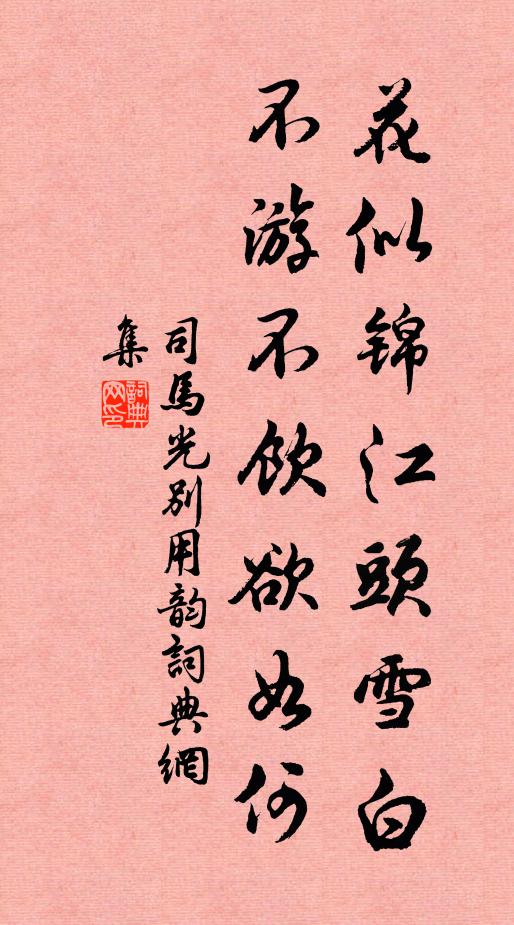 花似锦江頭雪白
不游不飲欲如何
司馬光别用韵詞典網
集
詞典网印